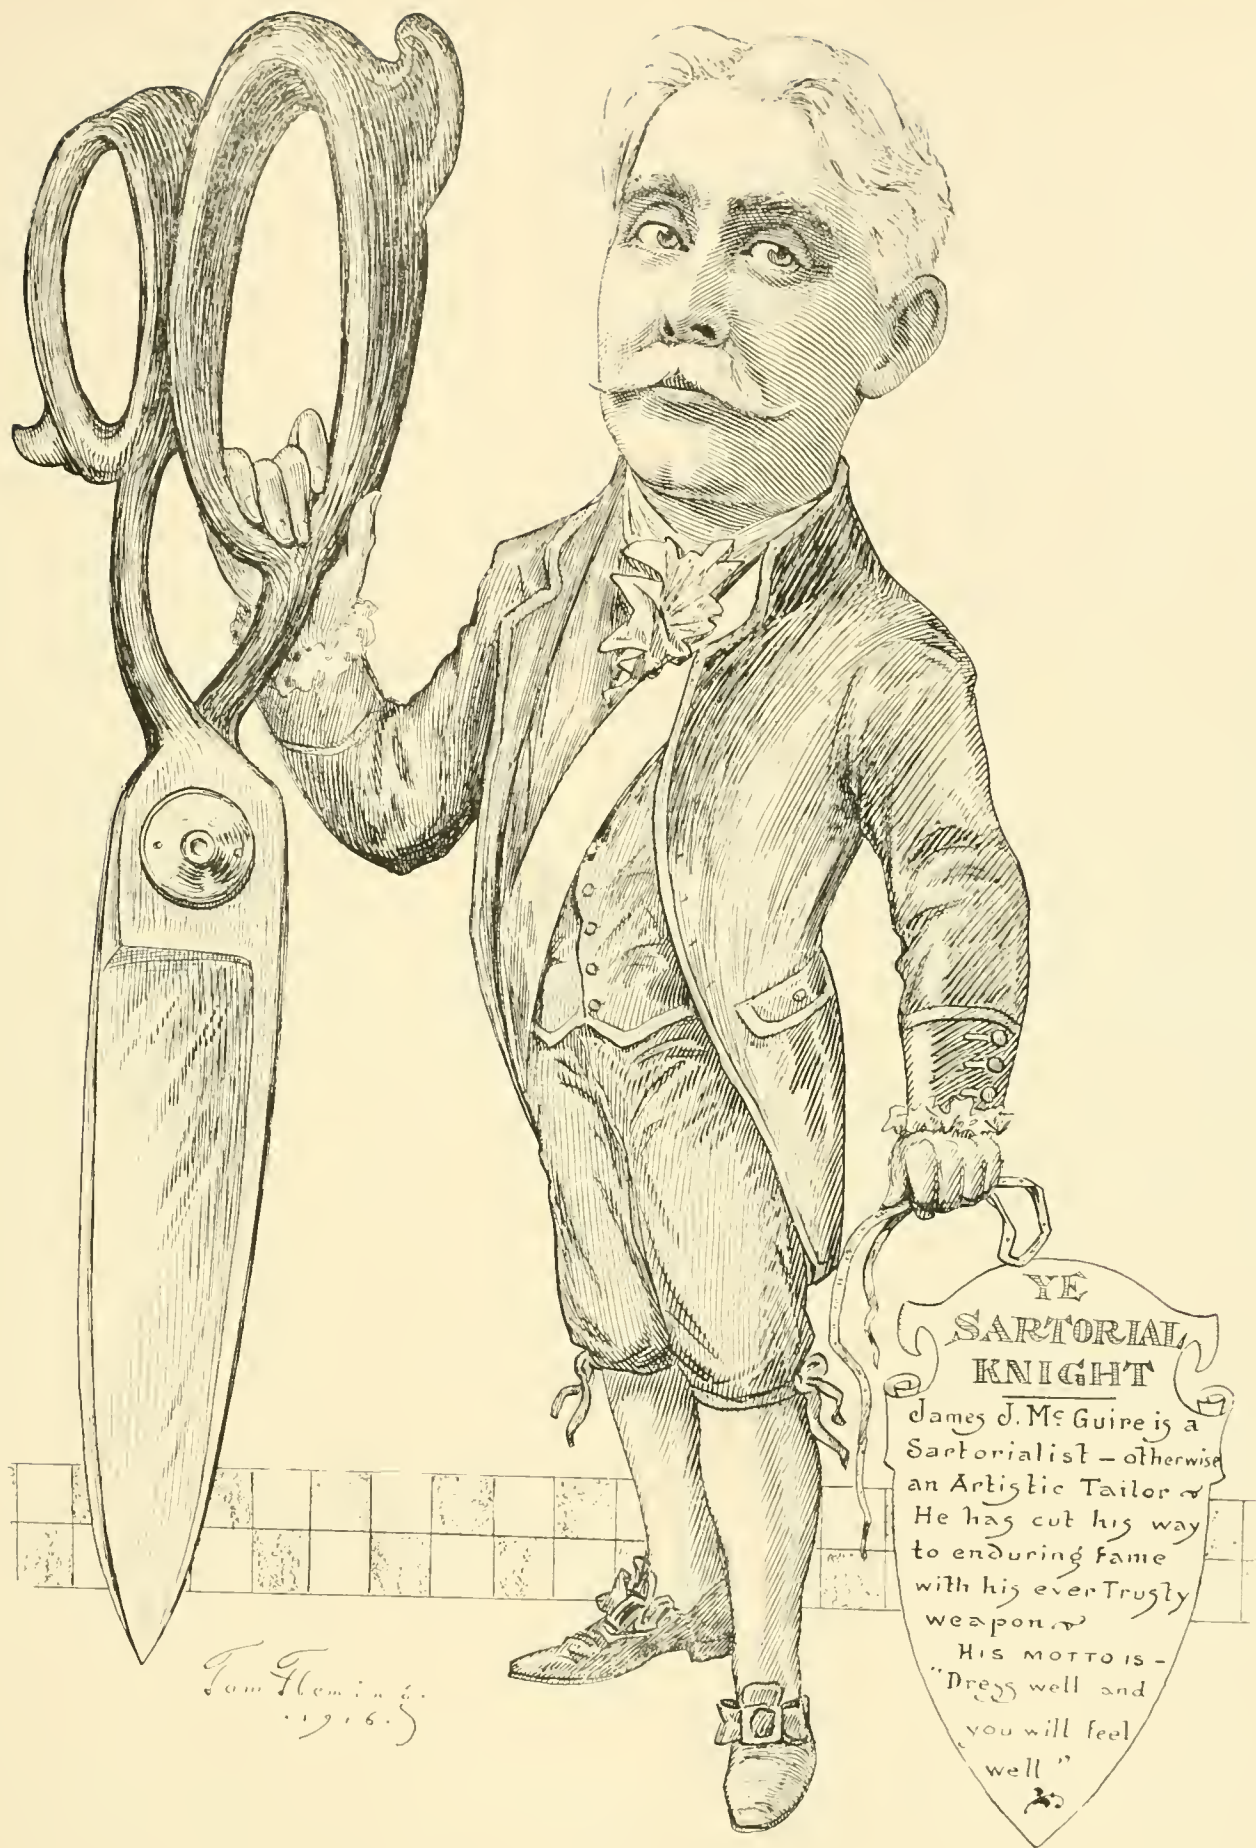 YE
SARTORIAL
KNIGHT
James J. Mc Guire is a
Sartorialist – otherwise
an Artistic Tailor
He has cut his way
to enduring Fame
with his ever Trusty
weapon.
HIS MOTTO IS –
"Dress well and
you will feel
well"
Tom Fleming.
.1916.